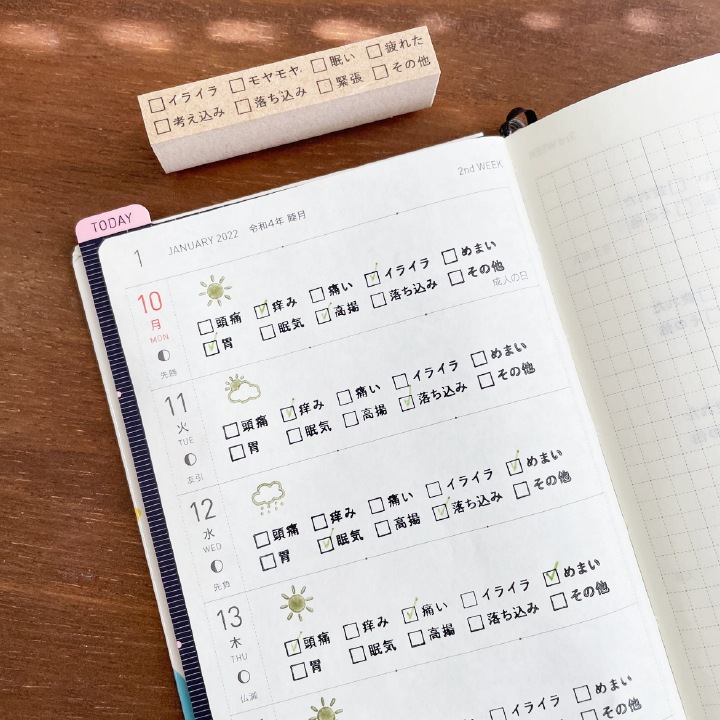 □イライラ □モヤモヤ □眠い □疲れた
□考え込み □落ち込み □緊張 □その他
TODAY
2nd WEEK
1 JANUARY 2022 令和4年 睦月
10 月 MON 先勝
□頭痛 ☑痒み □痛い ☑イライラ □めまい
☑胃 □眠気 ☑高揚 □落ち込み □その他
成人の日
11 火 TUE 友引
□頭痛 ☑痒み □痛い □イライラ □めまい
□胃 □眠気 □高揚 ☑落ち込み □その他
12 水 WED 先負
□頭痛 □痒み □痛い □イライラ ☑めまい
□胃 ☑眠気 □高揚 ☑落ち込み □その他
13 木 THU 仏滅
☑頭痛 □痒み ☑痛い □イライラ ☑めまい
□胃 □眠気 □高揚 □落ち込み □その他
□イライラ □めまい
□その他